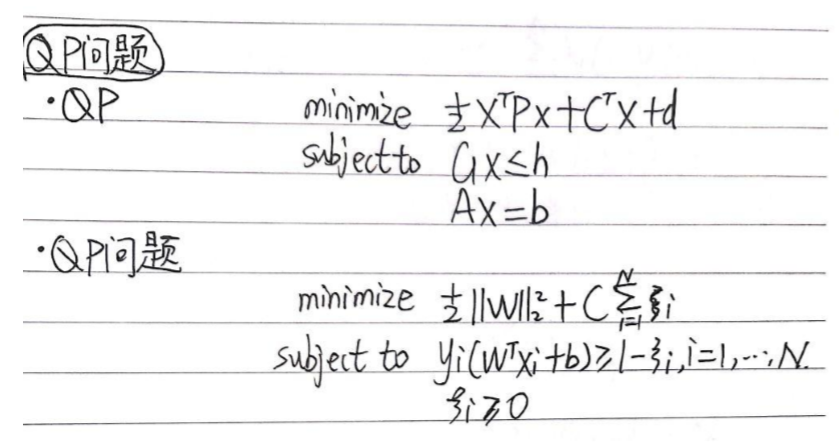 QP问题
·QP minimize ½xᵀPx+Cᵀx+d
subject to Gx≤h
Ax=b
·QP问题
minimize ½||W||₂²+C∑ᵢ₌₁ᴺξi
subject to yi(Wᵀxi+b)≥1-ξi,i=1,…,N.
ξi≥0